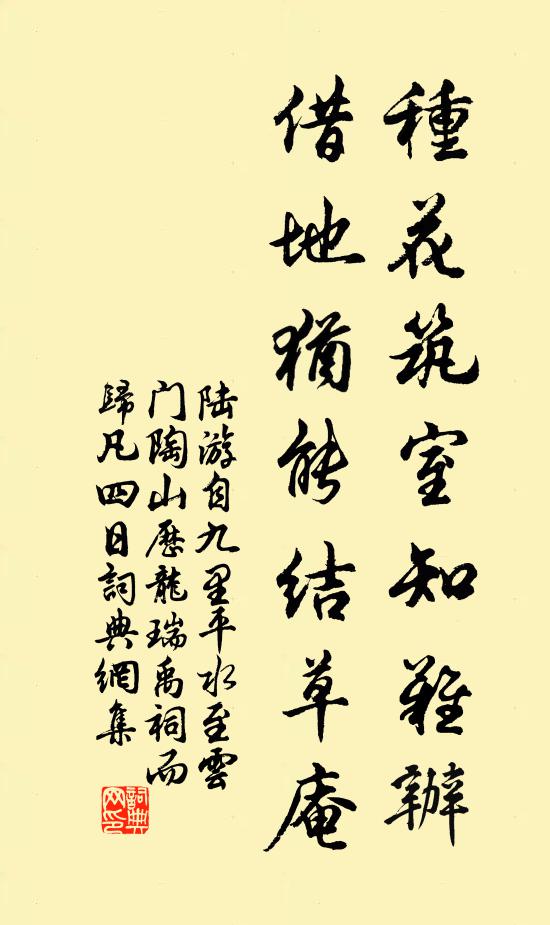 種花筑室知難辦
借地猶能結草庵
陆游自九里平水至雲
门陶山歷龍瑞禹祠而
歸凡四日詞典網集
詞典
网印